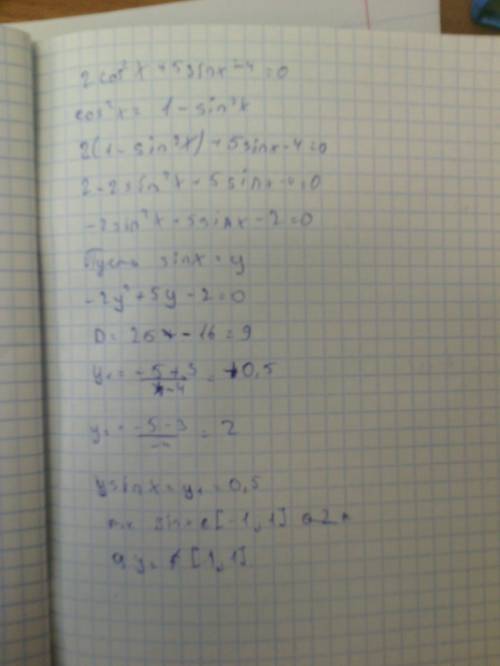 2cos²x + 5sinx - 4 = 0
cos²x = 1 - sin²x
2(1 - sin²x) + 5sinx - 4 = 0
2 - 2sin²x + 5sinx - 4 = 0
-2sin²x + 5sinx - 2 = 0
Пусть sinx = y
-2y² + 5y - 2 = 0
D = 25 - 16 = 9
y₁ = (-5 + 3)/(-4) = 0,5
y₂ = (-5 - 3)/(-4) = 2
sinx = y₁ = 0,5
sin ∈ [-1, 1] a 2
[1, 1]